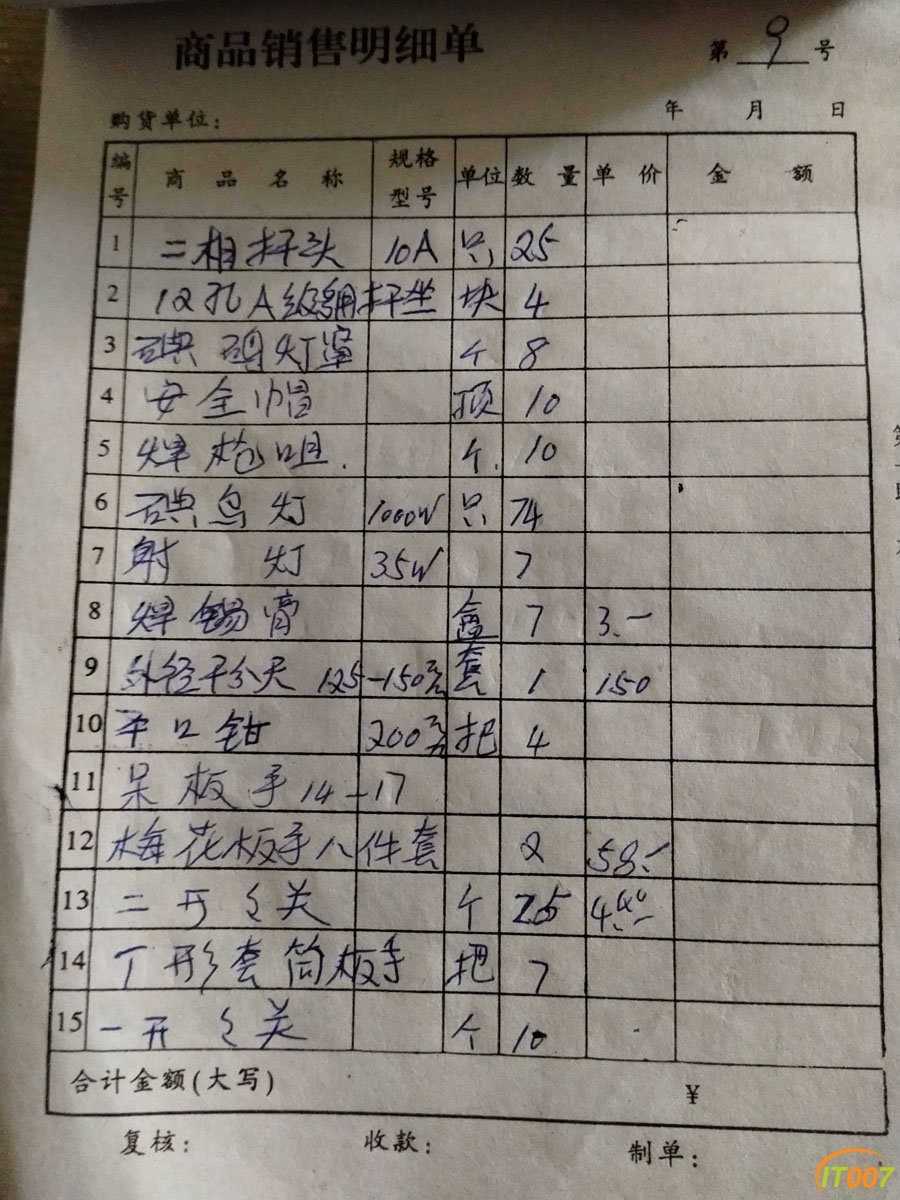 商品销售明细单
第 9 号
购货单位: 年 月 日
编号 商品名称 规格型号 单位 数量 单价 金额
1 二相扦头 10A 只 25
2 12孔A级 扦坐 块 4
3 碘 灯罩 个 8
4 安全帽 顶 10
5 焊枪咀. 个. 10
6 碘乌灯 1000W 只 74
7 射 灯 35W 7
8 焊锡膏 盒 7 3.-
9 外径千分尺 125-150 套 1 150
10 平口钳 200 把 4
11 呆板手 14-17
12 梅花板手八件套 2 58.-
13 二开 关 个 25
14 丁形套筒板手 把 7
15 一开 关 个 10
合计金额(大写) ¥
复核: 收款: 制单:
IT007